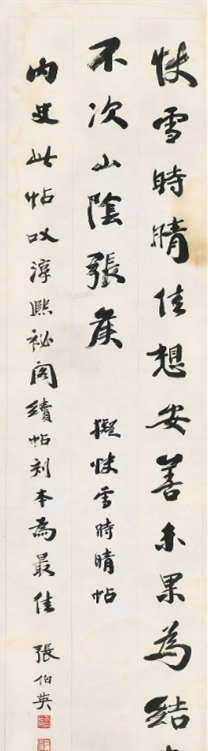 快雪時晴佳想安善未果為結
不次山陰張矦 擬快雪時晴帖
內史此帖以淳熙祕閣續帖刻本為最佳 張伯英